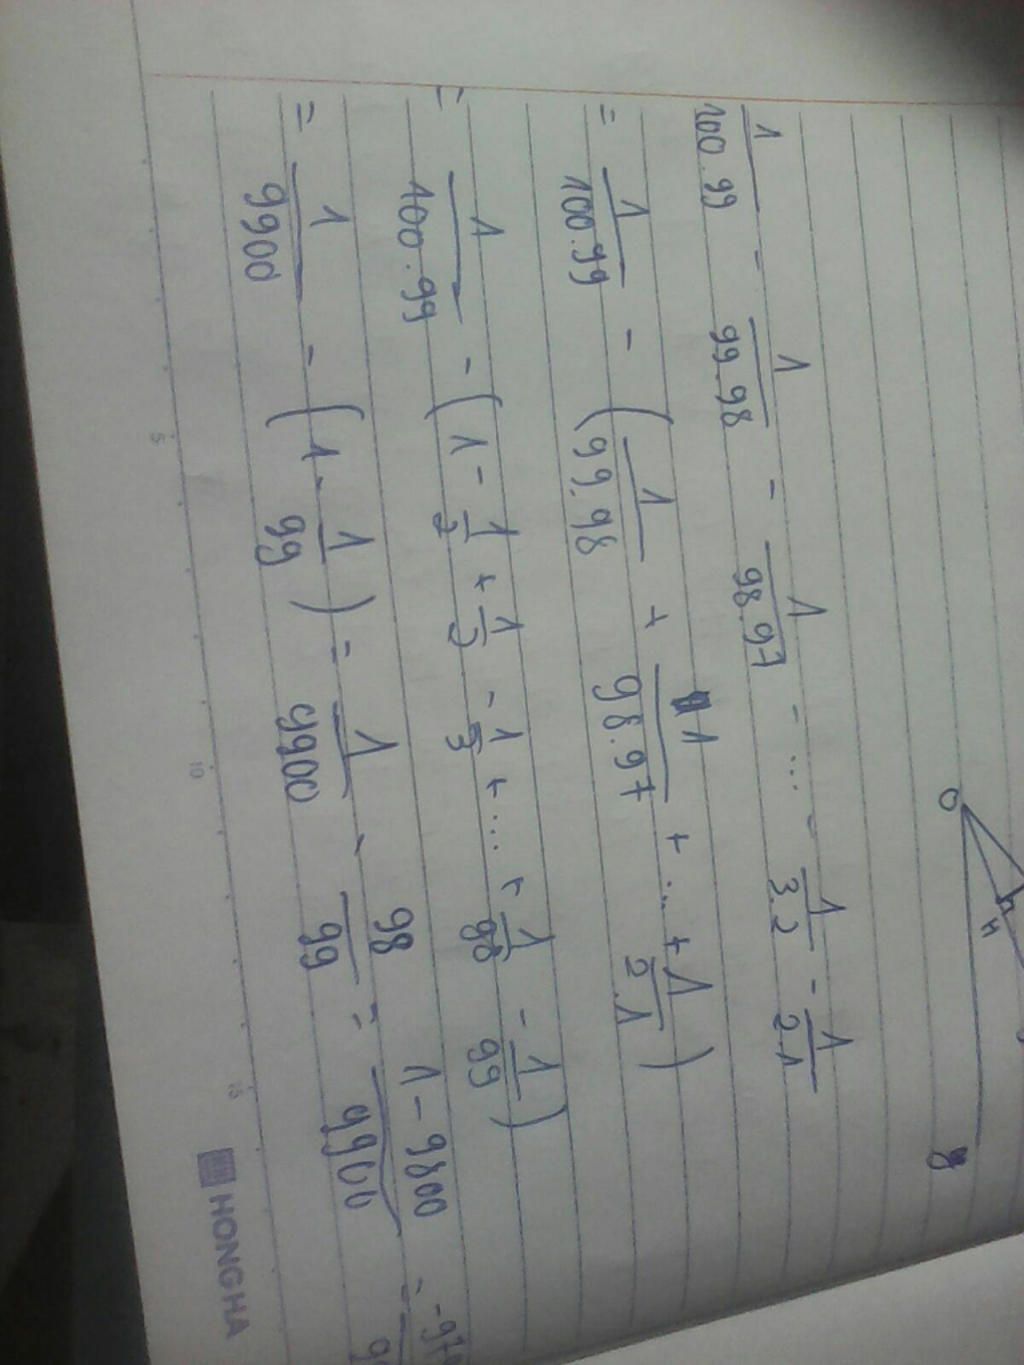 1/100.99 - 1/99.98 - 1/98.97 - ... - 1/3.2 - 1/2.1
= 1/100.99 - (1/99.98 + 1/98.97 + ... + 1/2.1)
= 1/100.99 - (1 - 1/2 + 1/2 - 1/3 + ... + 1/98 - 1/99)
= 1/9900 - (1 - 1/99) = 1/9900 - 98/99 = 1 - 9800/9900 =
O
H
HONG HA
5
10
15